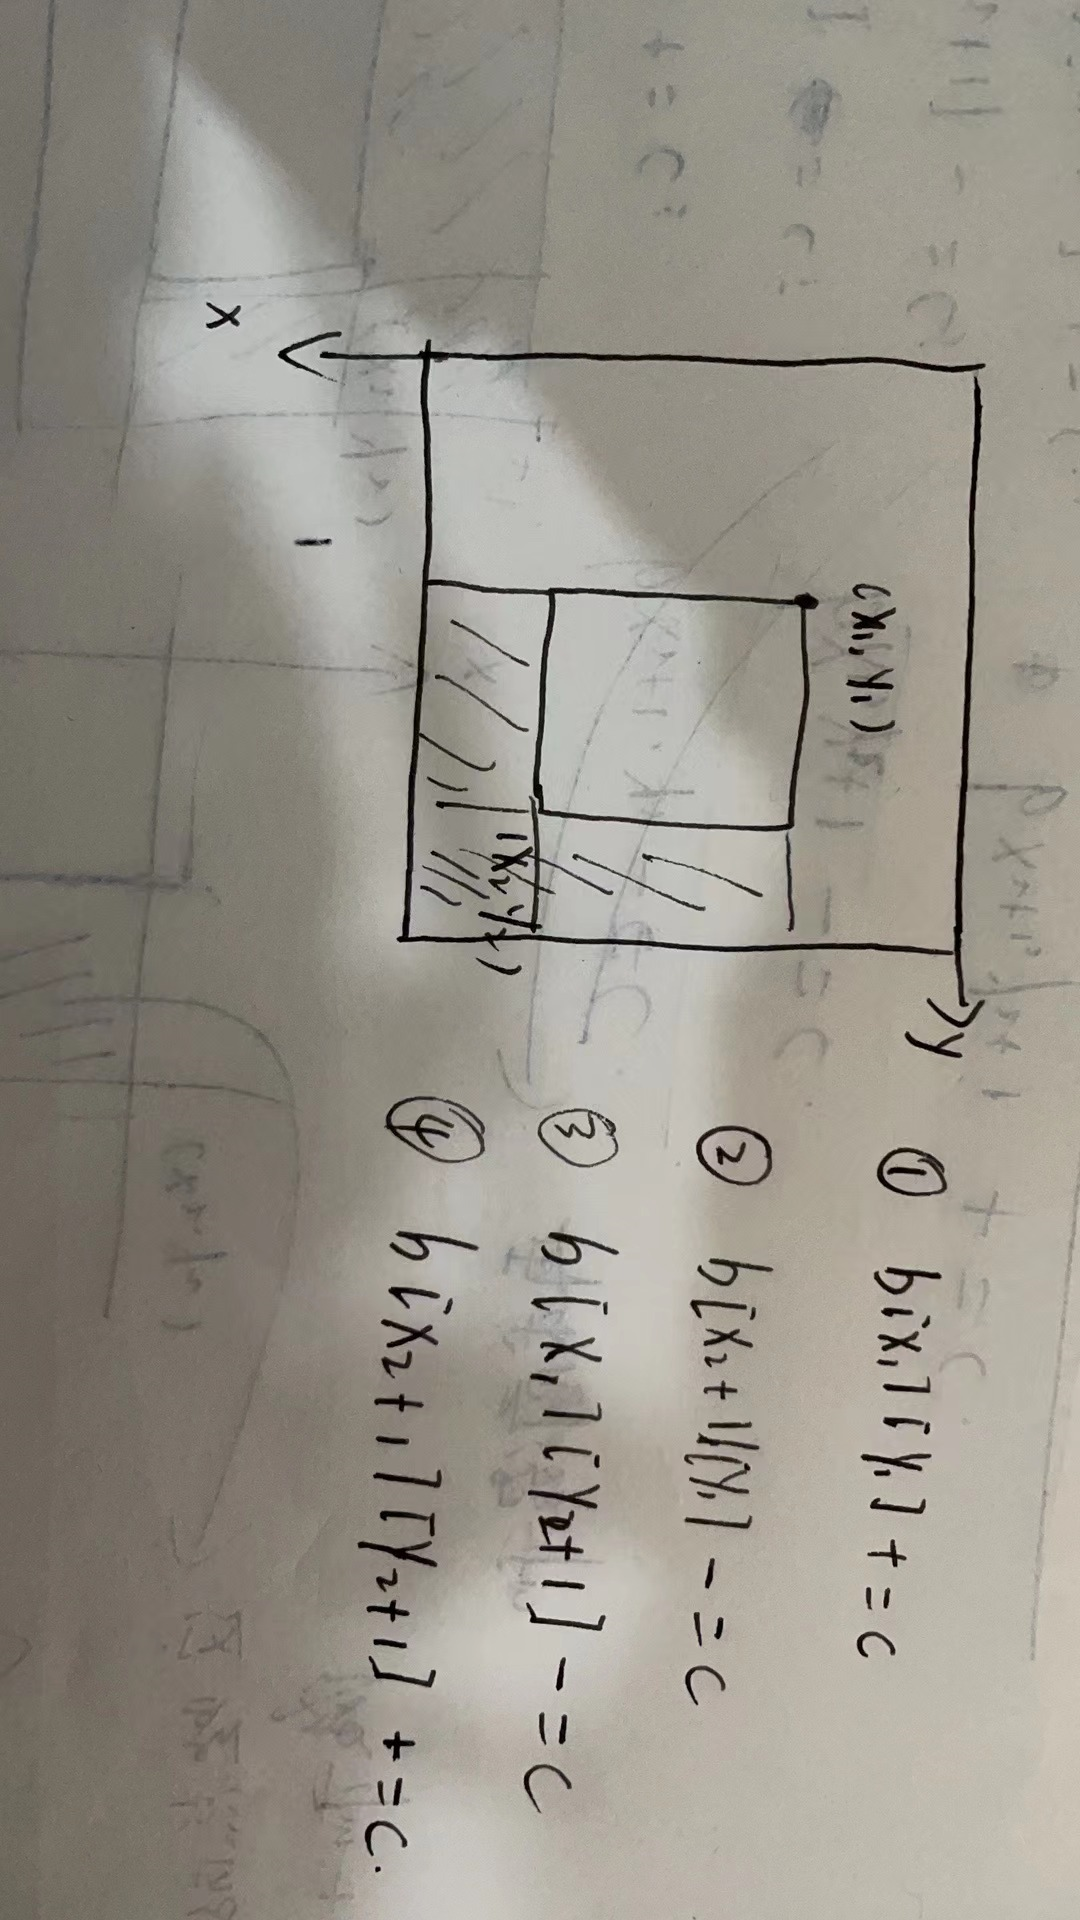 y
(x₁, y₁)
(x₂, y₂)
x
① b[x₁][y₁] += c
② b[x₂+1][y₁] -= c
③ b[x₁][y₂+1] -= c
④ b[x₂+1][y₂+1] += c.